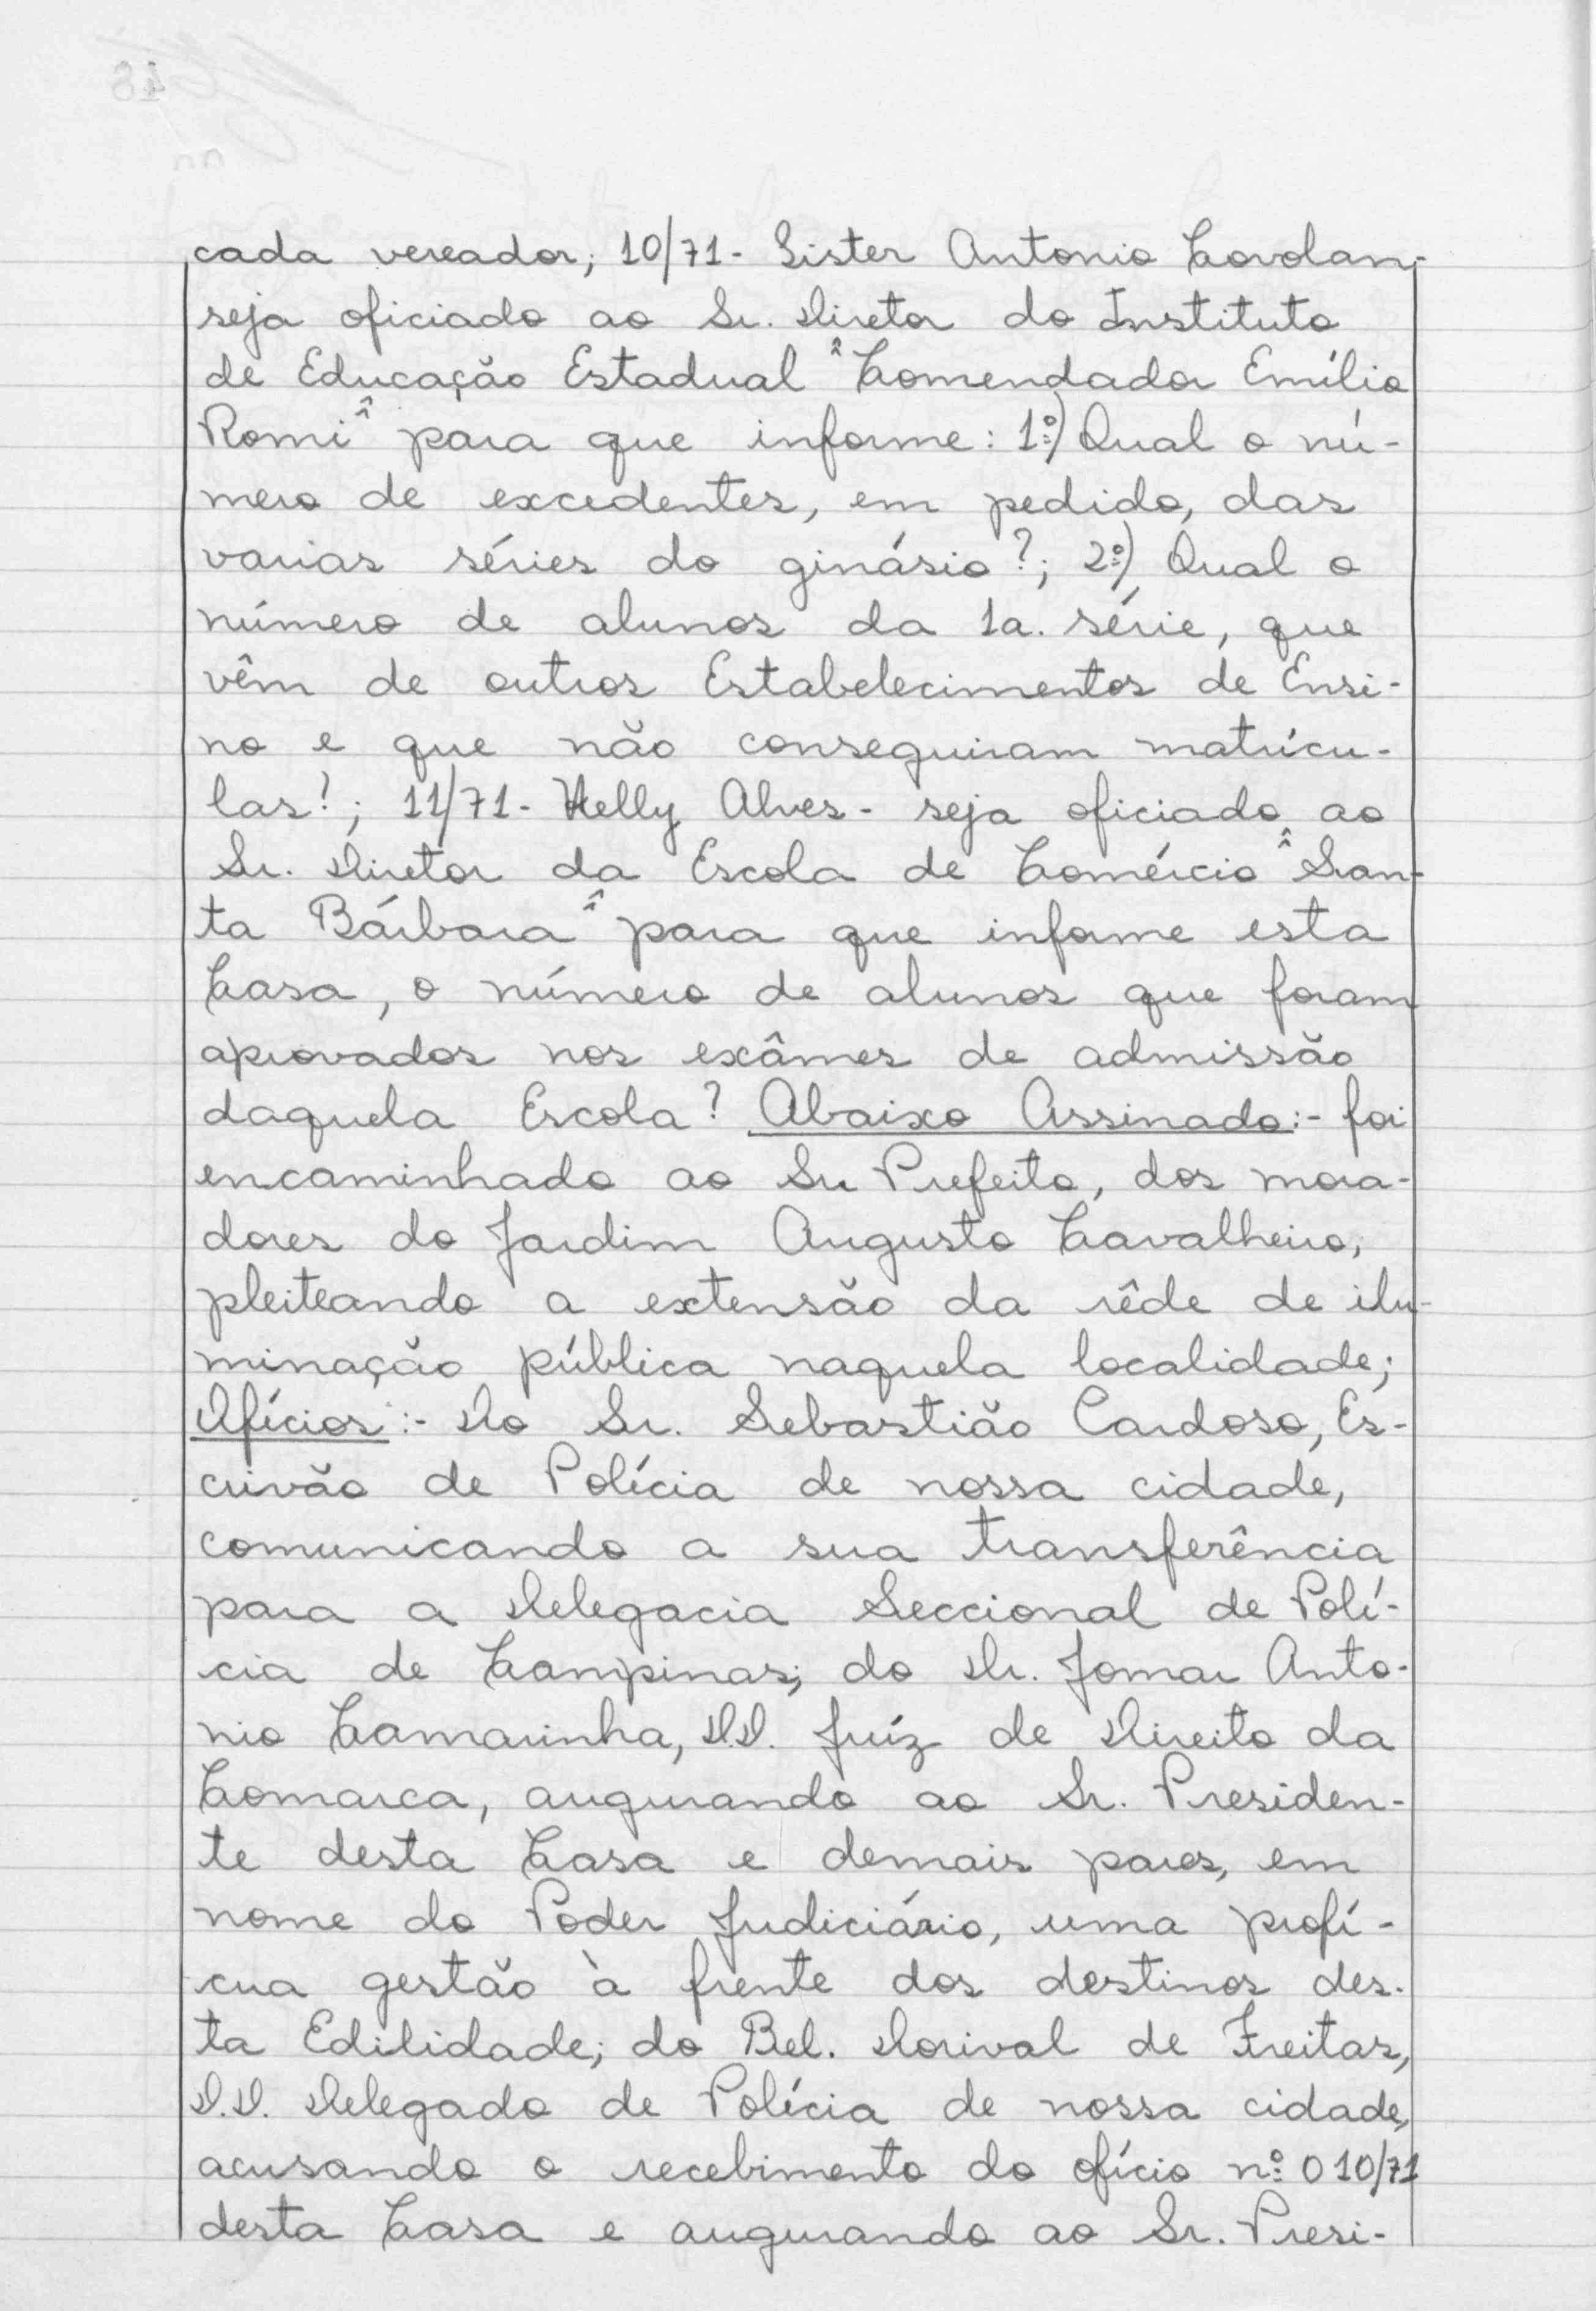 cada vereador; 10/71- Sister Antonio Covolan-
seja oficiado ao Sr. Diretor do Instituto
de Educação Estadual "Comendador Emílio
Romi" para que informe: 1º) Qual o nú-
mero de excedentes, em pedido, das
varias séries do ginásio?; 2º) Qual o
número de alunos da 1a. série, que
vêm de outros Estabelecimentos de Ensi-
no e que não conseguiram matrícu-
las?; 11/71- Helly Alves- seja oficiado ao
Sr. Diretor da Escola de Comércio "San-
ta Bárbara" para que informe esta
Casa, o número de alunos que foram
aprovados nos exâmes de admissão
daquela Escola? Abaixo Assinado:- foi
encaminhado ao Sr Prefeito, dos mora-
dores do Jardim Augusto Cavalheiro,
pleiteando a extensão da rêde de ilu-
minação pública naquela localidade;
Ofícios:- Do Sr. Sebastião Cardoso, Es-
crivão de Polícia de nossa cidade,
comunicando a sua transferência
para a Delegacia Seccional de Polí-
cia de Campinas; do Dr. Jomar Anto-
nio Camarinha, D.D. Juíz de Direito da
Comarca, augurando ao Sr. Presiden-
te desta Casa e demais pares, em
nome do Poder Judiciário, uma profí-
cua gestão à frente dos destinos des-
ta Edilidade; do Bel. Dorival de Freitas,
D.D. Delegado de Polícia de nossa cidade,
acusando o recebimento do ofício nº 010/71
desta Casa e augurando ao Sr. Presi-